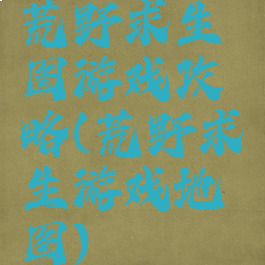 荒野求生
图游戏攻
略(荒野求
生游戏地
图)